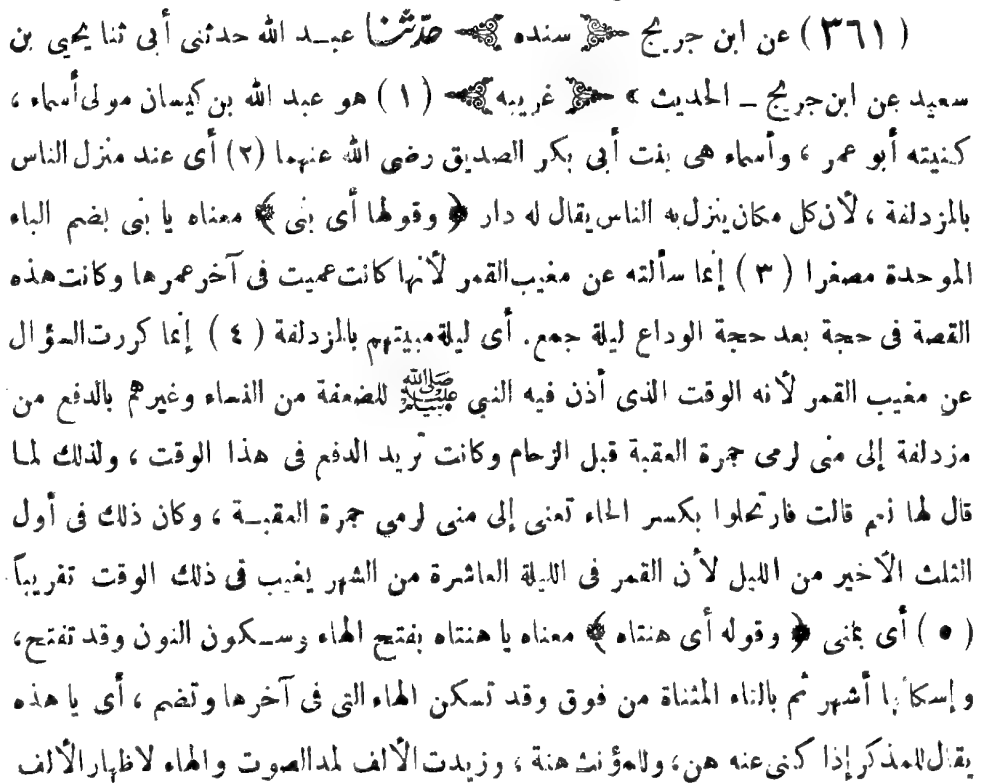 (٣٦١) عن ابن جريج ﴿ سنده ﴾ حدّثنا عبد الله حدثنى أبى ثنا يحيى بن
سعيد عن ابن جريج ــ الحديث » ﴿ غريبه ﴾ (١) هو عبد الله بن كيسان مولى أسماء ،
كنيته أبو عمر ، وأسماء هى بنت أبى بكر الصديق رضى الله عنهما (٢) أى عند منزل الناس
بالمزدلفة ، لأن كل مكان ينزل به الناس يقال له دار ﴿ وقولها أى بنى ﴾ معناه يا بنى بضم الباء
الموحدة مصغرا (٣) إنما سألته عن مغيب القمر لأنها كانت عميت فى آخر عمرها وكانت هذه
القصة فى حجة بعد حجة الوداع ليلة جمع. أى ليلة مبيتهم بالمزدلفة (٤) إنما كررت السؤال
عن مغيب القمر لأنه الوقت الذى أذن فيه النبى ﷺ للضعفة من النساء وغيرهم بالدفع من
مزدلفة إلى منى لرمى جمرة العقبة قبل الزحام وكانت تريد الدفع فى هذا الوقت ، ولذلك لما
قال لها نعم قالت فارتحلوا بكسر الحاء تعنى إلى منى لرمى جمرة العقبــة ، وكان ذلك فى أول
الثلث الأخير من الليل لأن القمر فى الليلة العاشرة من الشهر يغيب فى ذلك الوقت تقريباً
(٥) أى بمنى ﴿ وقوله أى هنتاه ﴾ معناه يا هنتاه بفتح الهاء وســكون النون وقد تفتح،
وإسكانها أشهر ثم بالتاء المثناة من فوق وقد تسكن الهاء التى فى آخرها وتضم ، أى يا هذه
يقال للمذكر إذا كنى عنه هن، وللمؤنث هنة ، وزيدت الألف لمد الصوت والهاء لاظهار الألف